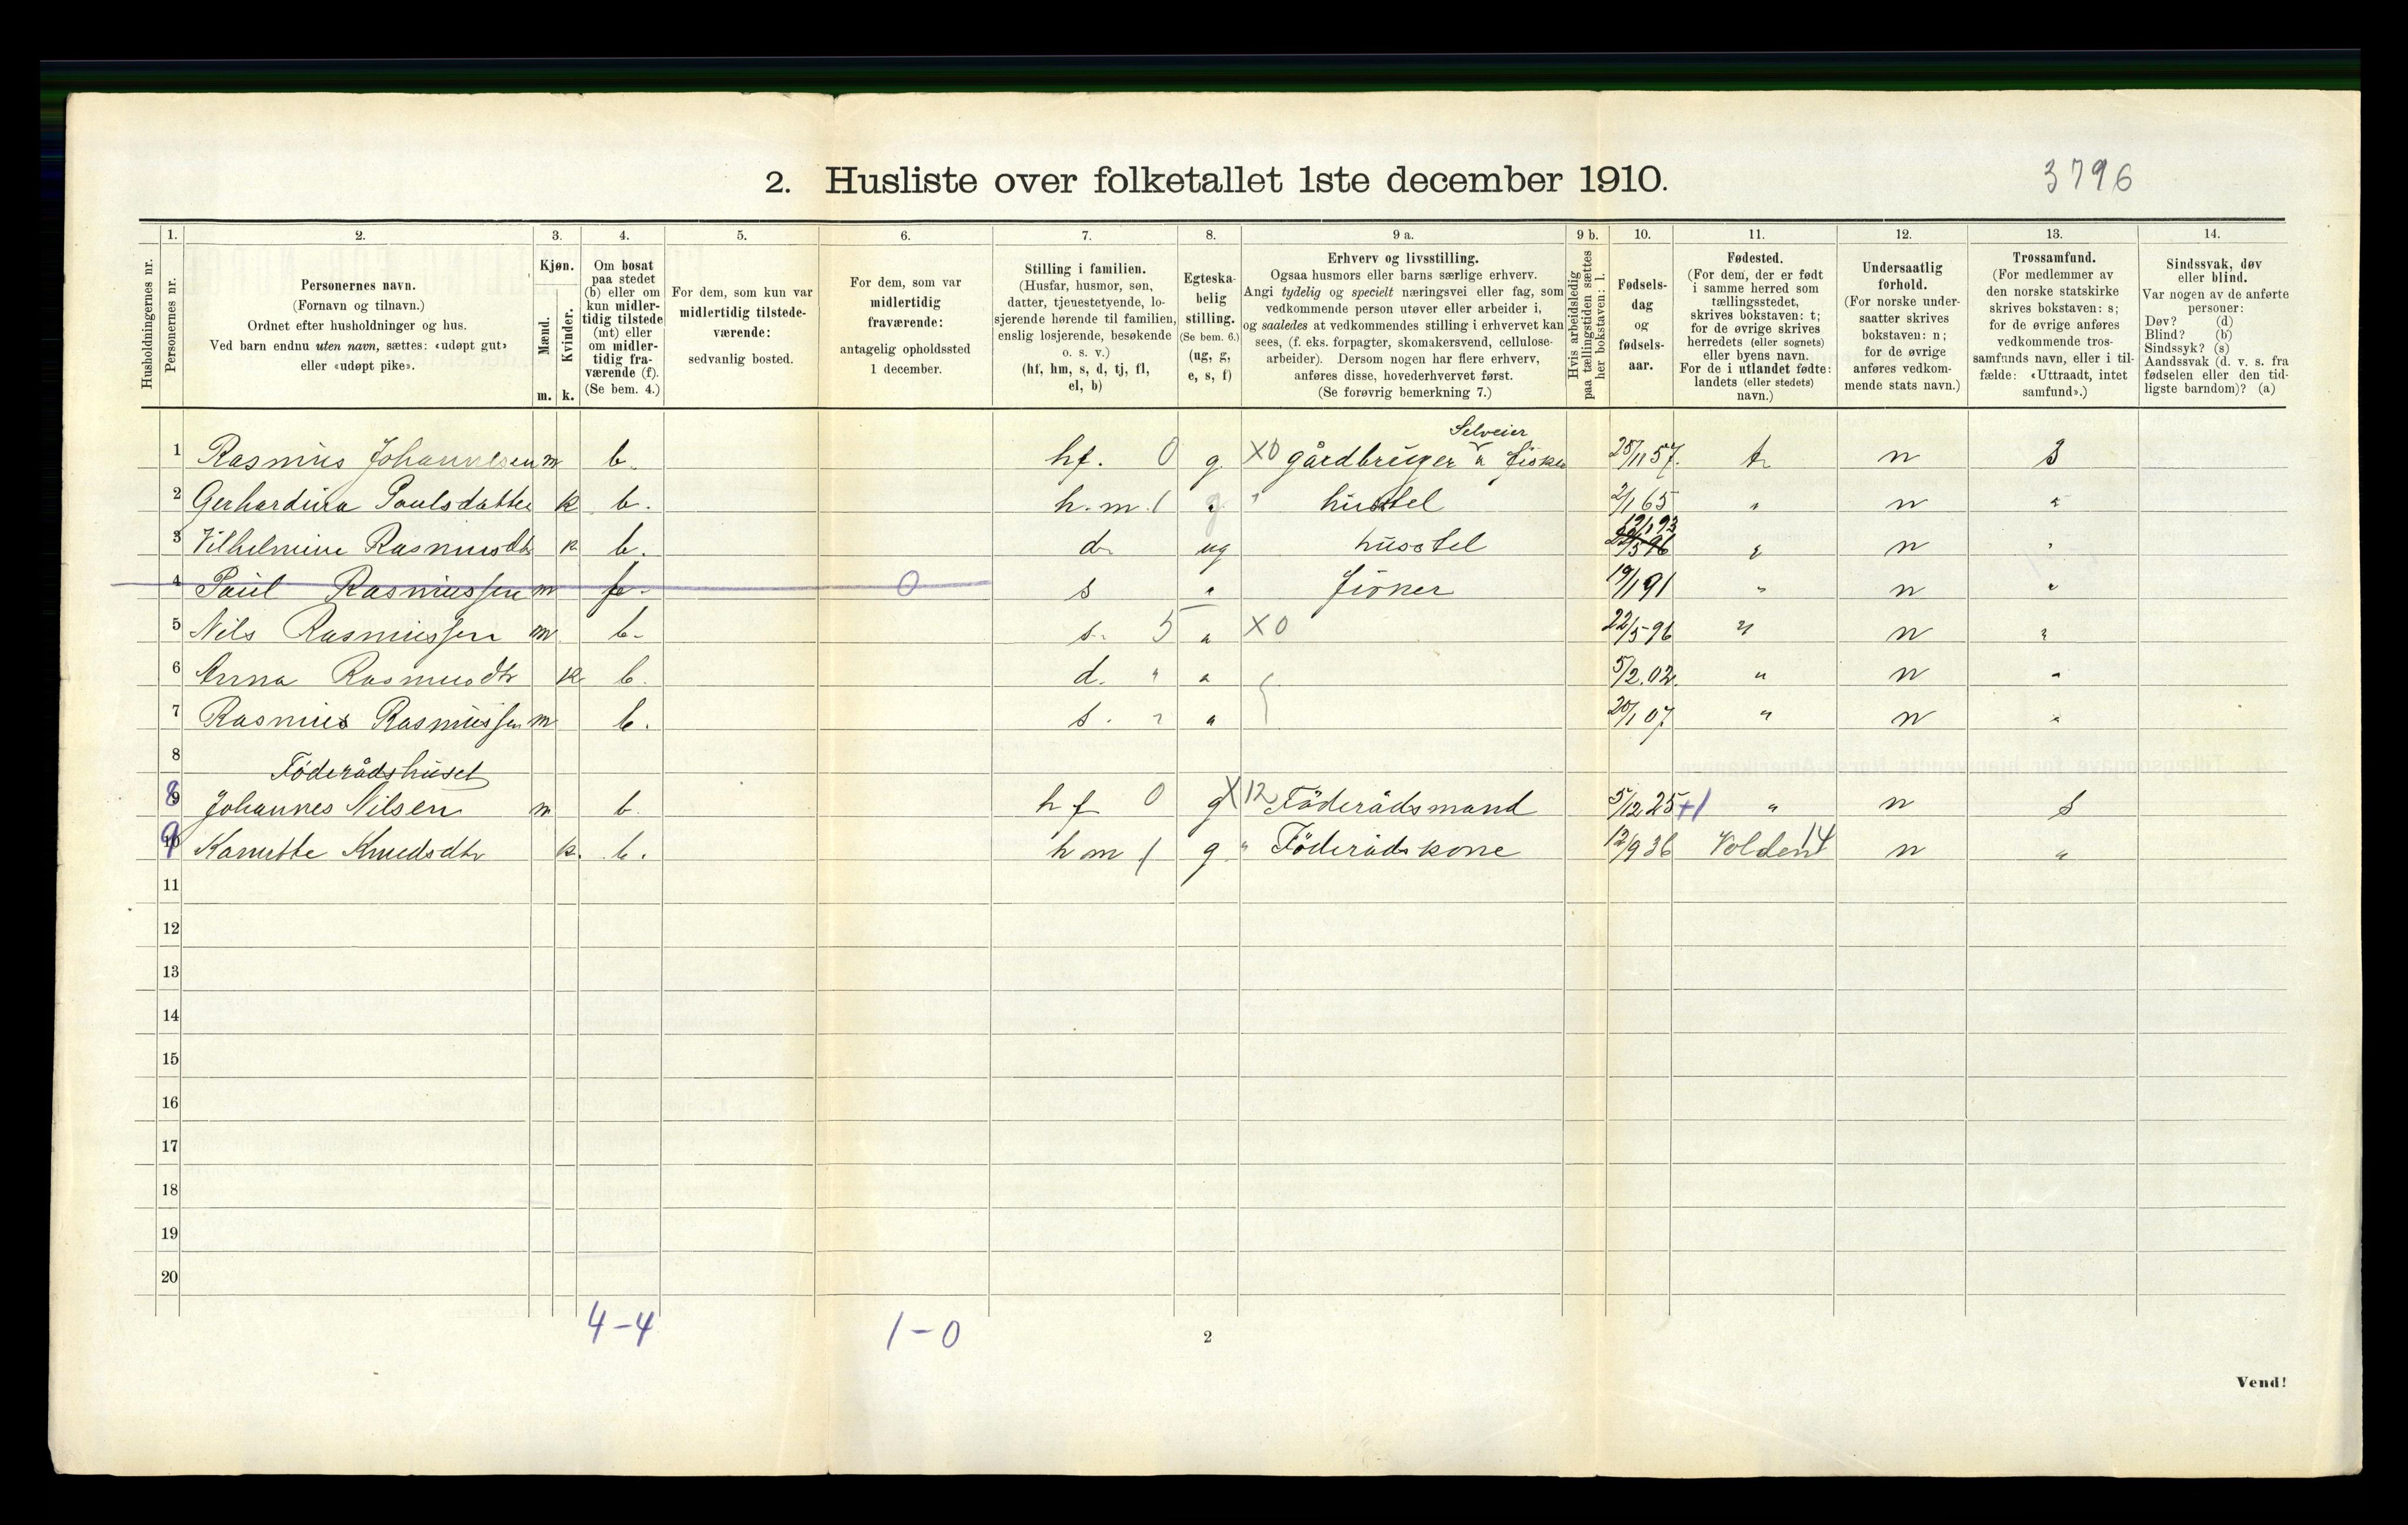 2. Husliste over folketallet 1ste december 1910.
3796
1. 2. 3. 4. 5. 6. 7. 8. 9 a. 9 b. 10. 11. 12. 13. 14.
Husholdningernes nr.
Personernes nr.
Personernes navn.
(Fornavn og tilnavn.)
Ordnet efter husholdninger og hus.
Ved barn endnu uten navn, sættes: «udøpt gut»
eller «udøpt pike».
Kjøn.
Mænd.
Kvinder.
m. k.
Om bosat
paa stedet
(b) eller om
kun midler-
tidig tilstede
(mt) eller
om midler-
tidig fra-
værende (f).
(Se bem. 4.)
For dem, som kun var
midlertidig tilstede-
værende:
sedvanlig bosted.
For dem, som var
midlertidig
fraværende:
antagelig opholdssted
1 december.
Stilling i familien.
(Husfar, husmor, søn,
datter, tjenestetyende, lo-
sjerende hørende til familien,
enslig losjerende, besøkende
o. s. v.)
(hf, hm, s, d, tj, fl,
el, b)
Egteska-
belig
stilling.
(Se bem. 6.)
(ug, g,
e, s, f)
Erhverv og livsstilling.
Ogsaa husmors eller barns særlige erhverv.
Angi tydelig og specielt næringsvei eller fag, som
vedkommende person utøver eller arbeider i,
og saaledes at vedkommendes stilling i erhvervet kan
sees, (f. eks. forpagter, skomakersvend, cellulose-
arbeider). Dersom nogen har flere erhverv,
anføres disse, hovederhvervet først.
(Se forøvrig bemerkning 7.)
Hvis arbeidsledig
paa tællingstiden sættes
her bokstaven: l.
Fødsels-
dag
og
fødsels-
aar.
Fødested.
(For dem, der er født
i samme herred som
tællingsstedet,
skrives bokstaven: t;
for de øvrige skrives
herredets (eller sognets)
eller byens navn.
For de i utlandet fødte:
landets (eller stedets)
navn.)
Undersaatlig
forhold.
(For norske under-
saatter skrives
bokstaven: n;
for de øvrige
anføres vedkom-
mende stats navn.)
Trossamfund.
(For medlemmer av
den norske statskirke
skrives bokstaven: s;
for de øvrige anføres
vedkommende tros-
samfunds navn, eller i til-
fælde: «Uttraadt, intet
samfund».)
Sindssvak, døv
eller blind.
Var nogen av de anførte
personer:
Døv? (d)
Blind? (b)
Sindssyk? (s)
Aandssvak (d. v. s. fra
fødselen eller den tid-
ligste barndom)? (a)
Selveier
1 Rasmus Johannesen m b. hf. 0 g. X0 gårdbruger & fisker 28/11 57. t. n S
2 Gerhardina Paulsdatter k b. h.m. 1 g " husstel 2/1 65 " n "
12/1 93
3 Vilhelmine Rasmusdtr k b. d. ug husstel 22/5 96 " n "
4 Paul Rasmussen m f. 0 s " Fisker 19/1 91 " n "
5 Nils Rasmussen m. b. s. 5 " X0 22/5-96 " n "
6 Anna Rasmusdtr k b. d. " " 5/2.02. " n "
7 Rasmus Rasmussen m b. s. " " 20/1 07 " n "
8
Föderådshuset
9 8 Johannes Nilsen m b. hf 0 g X12 Föderådsmand 5/12 25 +1 " n S
10 9 Kanutte Knudsdtr k. b. hm 1 g. " Föderådskone 12/9 36 Volden 14 n "
11
12
13
14
15
16
17
18
19
20
4-4 1-0
2
Vend!